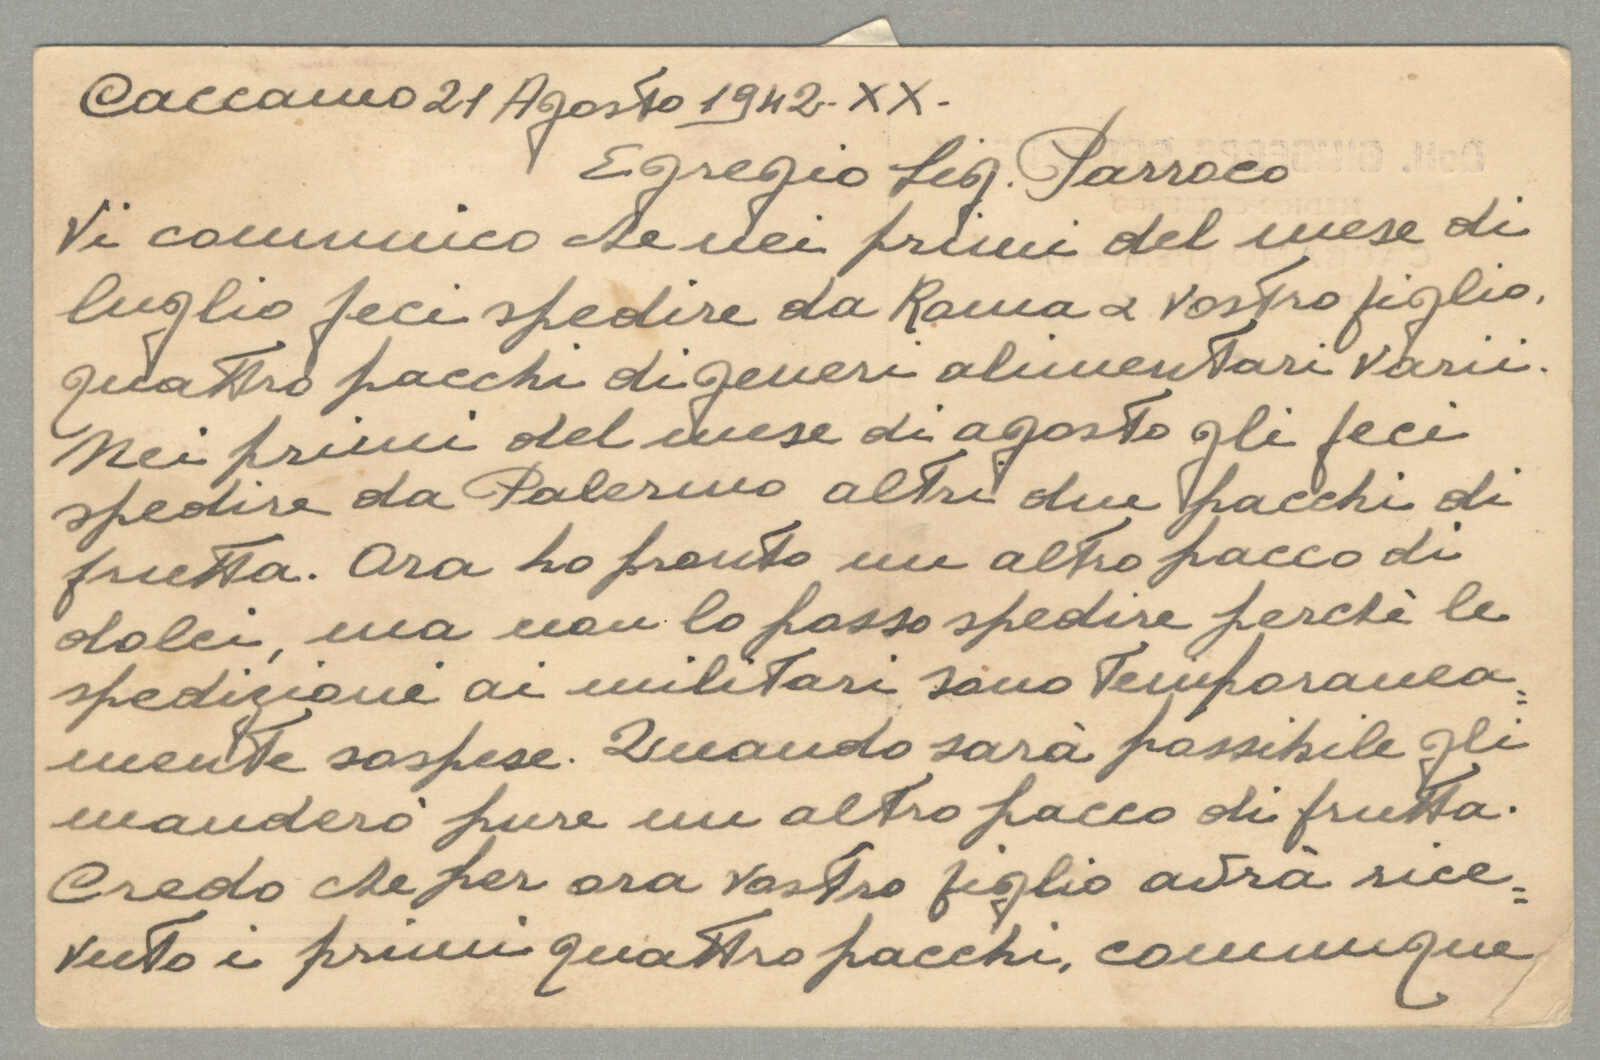 Caccamo 21 Agosto 1942-XX-
Egregio Sig. Parroco
Vi comunico che nei primi del mese di
luglio feci spedire da Roma a vostro figlio,
quattro pacchi di generi alimentari varii.
Nei primi del mese di agosto gli feci
spedire da Palermo altri due pacchi di
frutta. Ora ho pronto un altro pacco di
dolci, ma non lo posso spedire perchè le
spedizioni ai militari sono temporanea=
mente sospese. Quando sarà possibile gli
manderò pure un altro pacco di frutta.
Credo che per ora vostro figlio avrà rice=
vuto i primi quattro pacchi, comunque